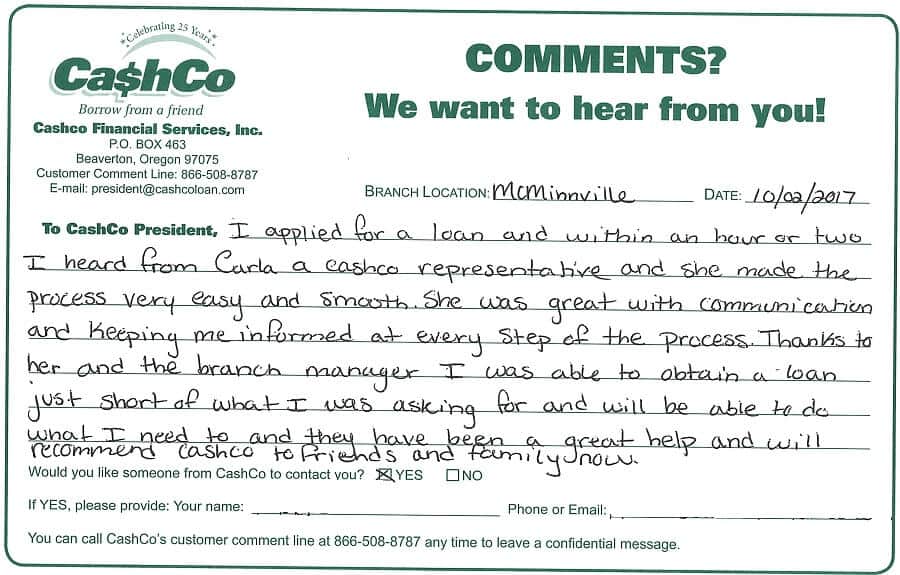 Celebrating 25 Years
Ca$hCo
Borrow from a friend
Cashco Financial Services, Inc.
P.O. BOX 463
Beaverton, Oregon 97075
Customer Comment Line: 866-508-8787
E-mail: president@cashcoloan.com
COMMENTS?
We want to hear from you!
BRANCH LOCATION: McMinnville DATE: 10/02/2017
To CashCo President, I applied for a loan and within an hour or two
I heard from Carla a cashco representative and she made the
process very easy and smooth. She was great with communication
and Keeping me informed at every step of the process. Thanks to
her and the branch manager I was able to obtain a loan
just short of what I was asking for and will be able to do
what I need to and they have been a great help and will
recommend cashco to friends and family now.
Would you like someone from CashCo to contact you? ☒YES ☐NO
If YES, please provide: Your name: Phone or Email:
You can call CashCo's customer comment line at 866-508-8787 any time to leave a confidential message.